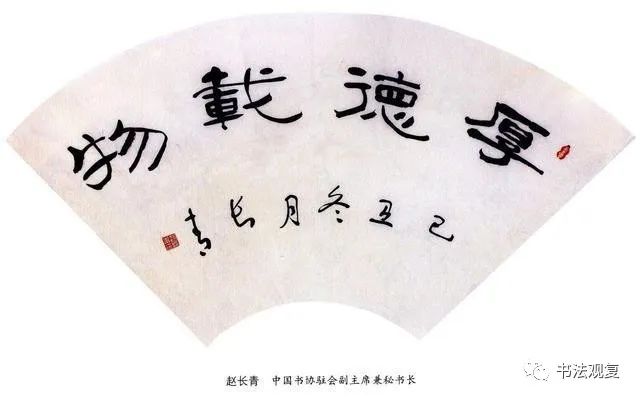 厚德載物
己丑冬月长青
赵长青 中国书协驻会副主席兼秘书长
书法观复